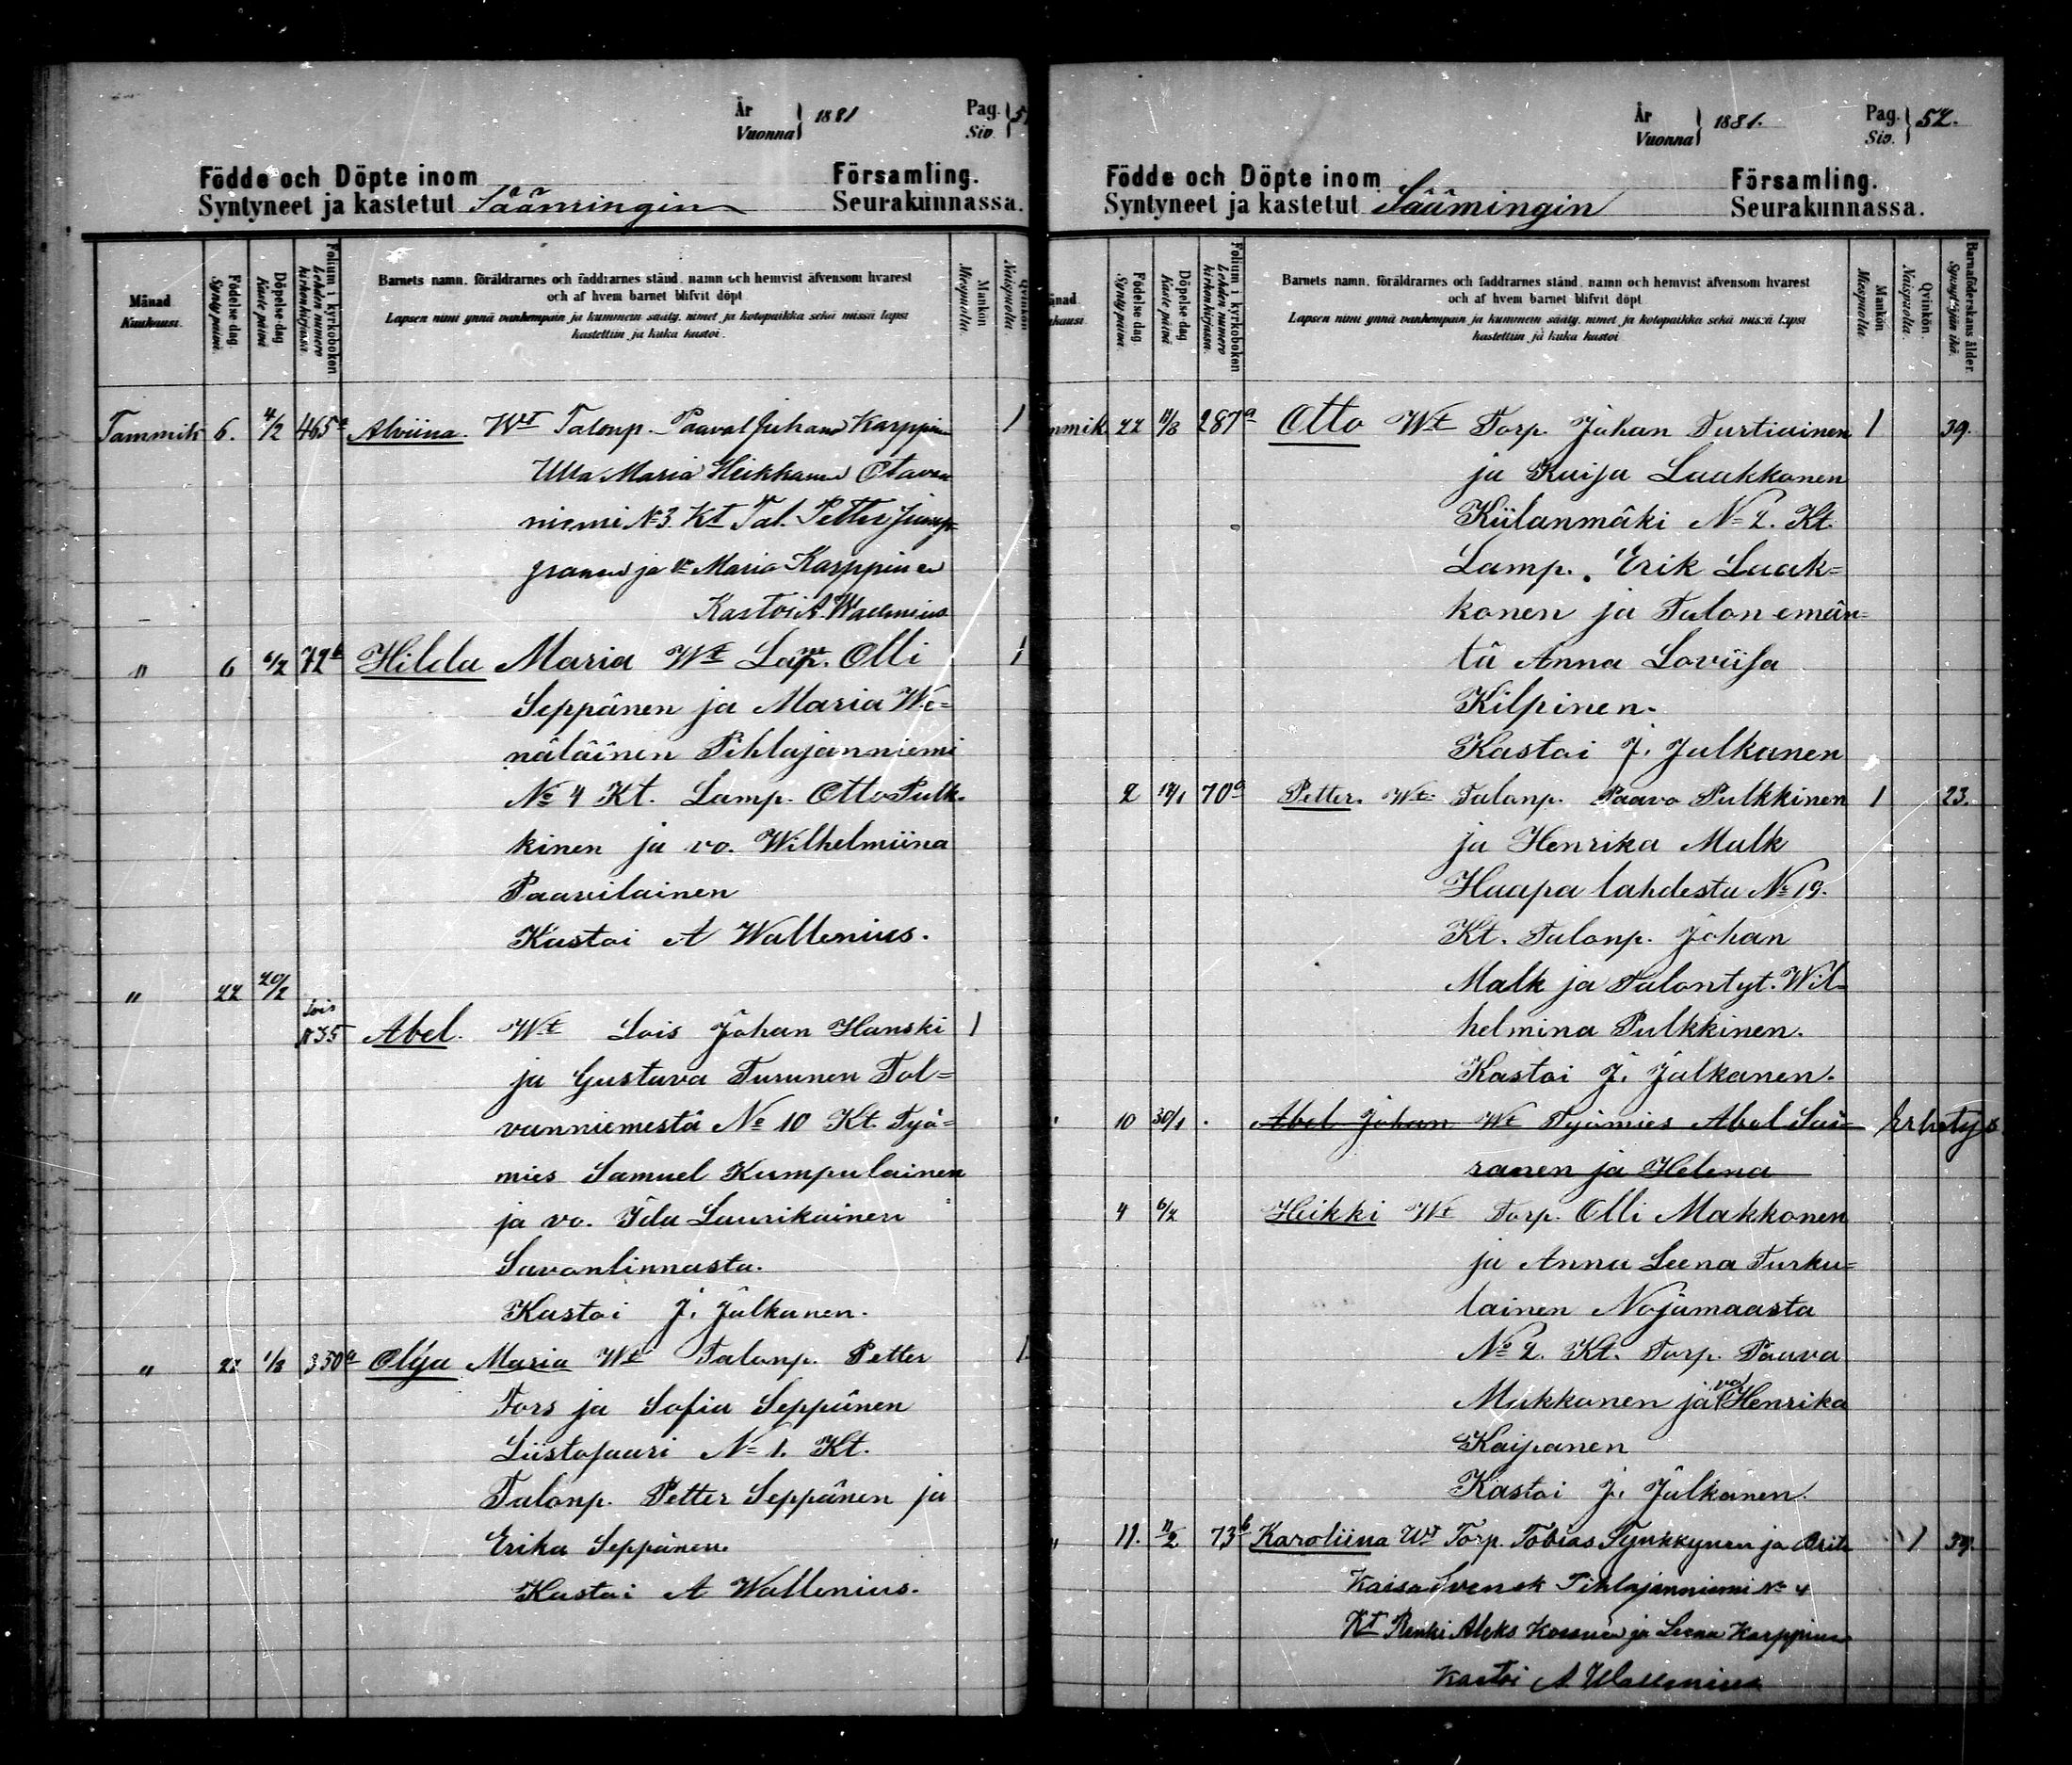 År
Vuonna } 1881
Pag.
Siv. } 51
Födde och Döpte inom Församling.
Syntyneet ja kastetut Säämingin Seurakunnassa.
Månad
Kuukausi.
Födelse dag.
Synty päivä.
Döpelse dag
Kaste päivä
Folium i kyrkoboken
Lehden numero
kirkonkirjassa.
Barnets namn, föräldrarnes och faddrarnes stånd, namn och hemvist äfvensom hvarest
och af hvem barnet blifvit döpt
Lapsen nimi ynnä vanhempain ja kummein sääty, nimet ja kotopaikka sekä missä lapsi
kastettiin ja kuka kastoi.
Mankön
Miespuolta.
Qvinkön
Naispuolta.
Tammik 6. 4/2 465a Alviina. Wt Talonp. Paaval Juhana Karppinen 1
Ulla Maria Heikkanen Otavan
niemi No 3 Kt Tal. Petter
ja vo Maria Karppinen
Kastoi A. Wallenius
" 6 6/2 72b Hilda Maria Wt Lamp. Olli 1
Seppänen ja Maria We=
näläinen Pihlajanniemi
No 4 Kt. Lamp. Otto Pulk-
kinen ja vo. Wilhelmiina
Paavilainen
Kastoi A Wallenius.
" 22 20/2
Lois
No 35 Abel. Wt Lois Johan Hanski 1
ja Gustava Turunen Tol=
vanniemestä No 10 Kt. Työ=
mies Samuel Kumpulainen
ja vo. Ida Laurikainen
Savonlinnasta.
Kastoi J. Julkunen.
" 22 1/3 350a Olga Maria Wt Talonp. Petter 1.
Fors ja Sofia Seppänen
Liistosaari No 1. Kt.
Talonp. Petter Seppänen ja
Erika Seppänen.
Kastoi A Wallenius.
År
Vuonna } 1881.
Pag.
Siv. } 52.
Födde och Döpte inom Församling.
Syntyneet ja kastetut Säämingin Seurakunnassa.
Månad
Kuukausi
Födelse dag.
Synty päivä.
Döpelse dag
Kaste päivä
Folium i kyrkoboken
Lehden numero
kirkonkirjassa.
Barnets namn, föräldrarnes och faddrarnes stånd, namn och hemvist äfvensom hvarest
och af hvem barnet blifvit döpt
Lapsen nimi ynnä vanhempain ja kummein sääty, nimet ja kotopaikka sekä missä lapsi
kastettiin ja kuka kastoi
Mankön
Miespuolta.
Qvinkön.
Naispuolta.
Barnaföderskans ålder.
Synnyttäjän ikä.
Tammik 22 11/3 287a Otto Wt Torp. Johan Turtiainen 1 39.
ja Kaisa Laakkonen
Kiilanmäki No 2. Kt.
Lamp. Erik Laak=
konen ja Talon emän=
tä Anna Loviisa
Kilpinen.
Kastoi J. Julkunen
2 12/1 70a Petter. Wt. Talonp. Paavo Pulkkinen 1 23.
ja Henrika Malk
Haapa lahdesta No 19.
Kt. Talonp. Johan
Malk ja Talontyt. Wil=
helmina Pulkkinen.
Kastoi J. Julkunen.
10 30/1 Abel Johan Wt Työmies Abel Sai= Erhetys
ranen ja Helena
4 6/2 Heikki Wt Torp. Olli Makkonen
ja Anna Leena Turku=
lainen Nojamaasta
No 2. Kt. Torp. Paava
Makkonen ja vo Henrika
Kaipanen
Kastoi J. Julkunen.
" 11. 11/2 73b Karoliina Wt Torp. Tobias Tynkkynen ja Brita 1 39.
Kaisa Svensk Pihlajanniemi No 4
Kt Renki Aleks Kosonen ja Leena Karppinen
Kastoi A. Wallenius